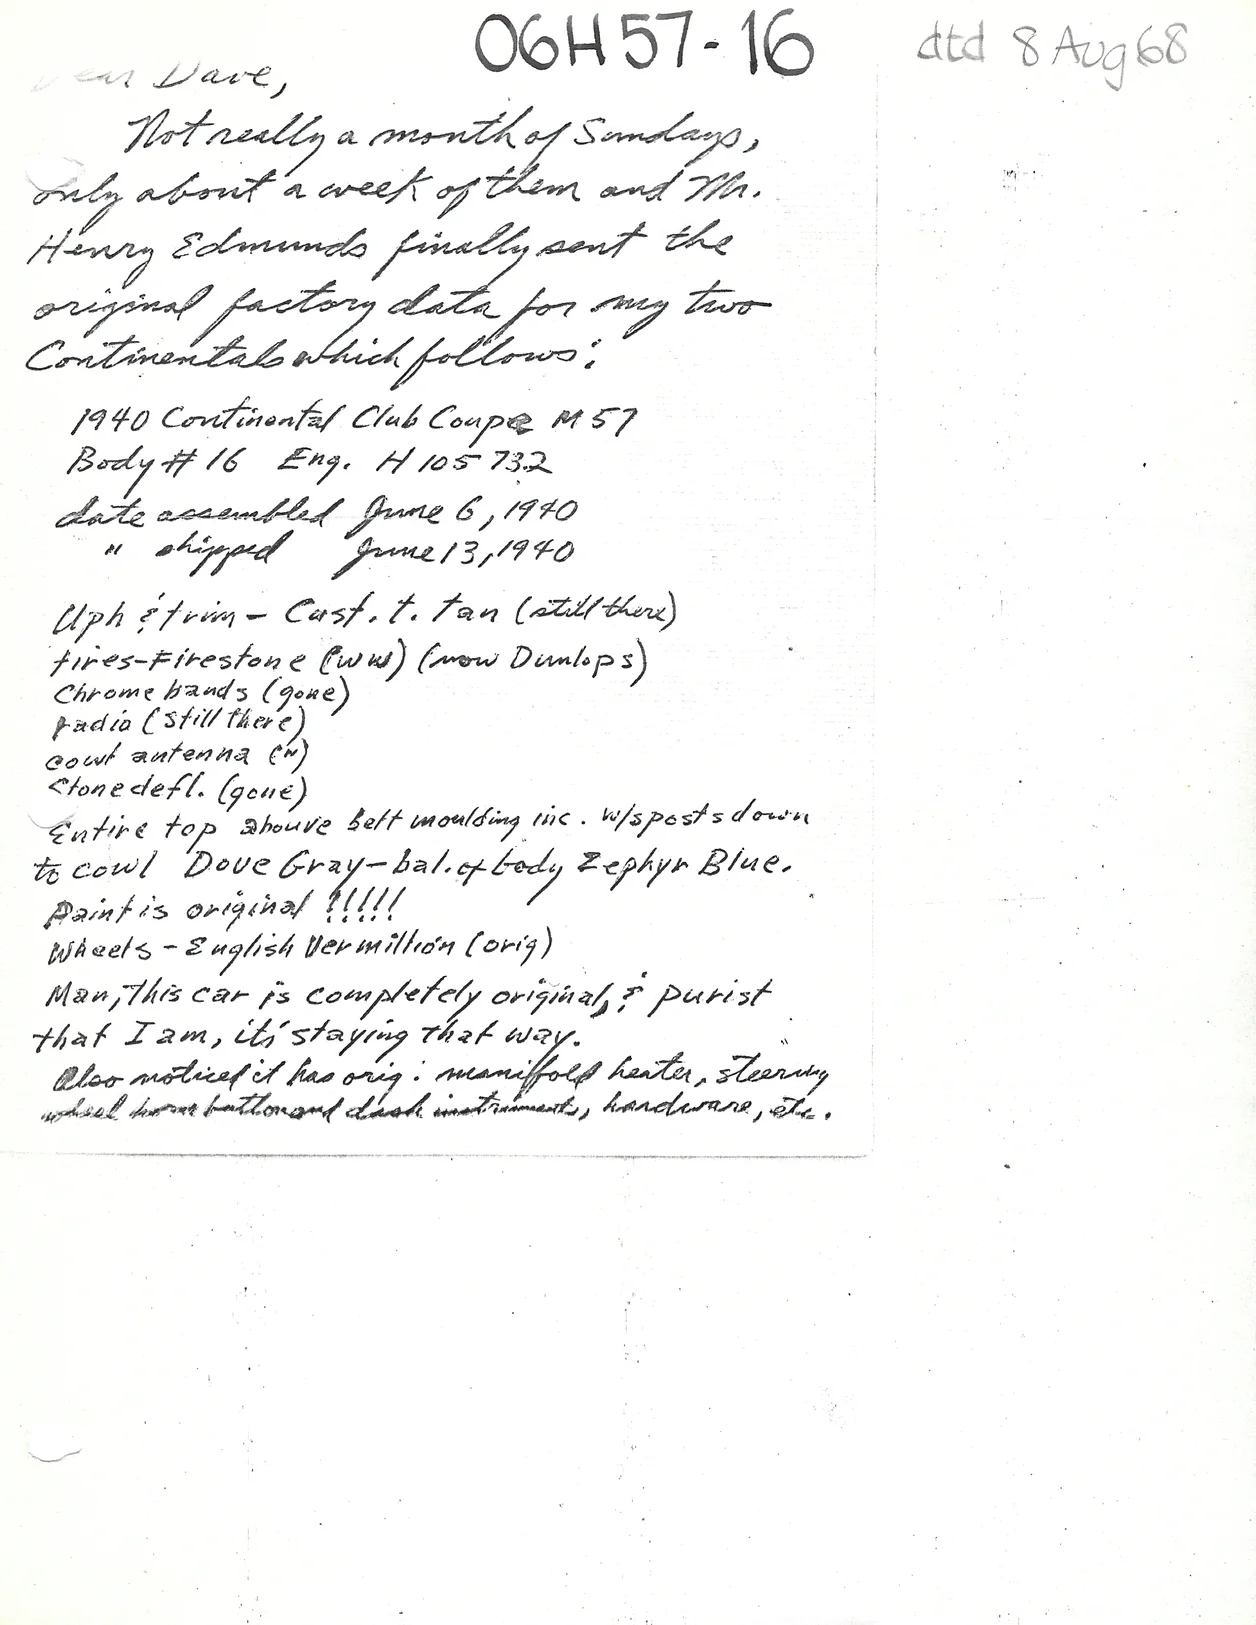 06H57-16
dtd 8 Aug 68
Dear Dave,
Not really a month of Sundays,
only about a week of them and Mr.
Henry Edmunds finally sent the
original factory data for my two
Continentals which follows:
1940 Continental Club Coupe M57
Body # 16 Eng. H 105732
date assembled June 6, 1940
" shipped June 13, 1940
Uph & trim - Cust. t. tan (still there)
tires-Firestone (ww) (now Dunlops)
Chrome bands (gone)
radio (still there)
cowl antenna (")
Stone defl. (gone)
Entire top abouve belt moulding inc. w/s posts down
to cowl Dove Gray - bal. of body Zephyr Blue.
Paint is original !!!!!
Wheels - English Vermillion (orig)
Man, this car is completely original, & purist
that I am, it's staying that way.
Also noticed it has orig: maniffold heater, steering
wheel horn button and dash instruments, hardware, etc.